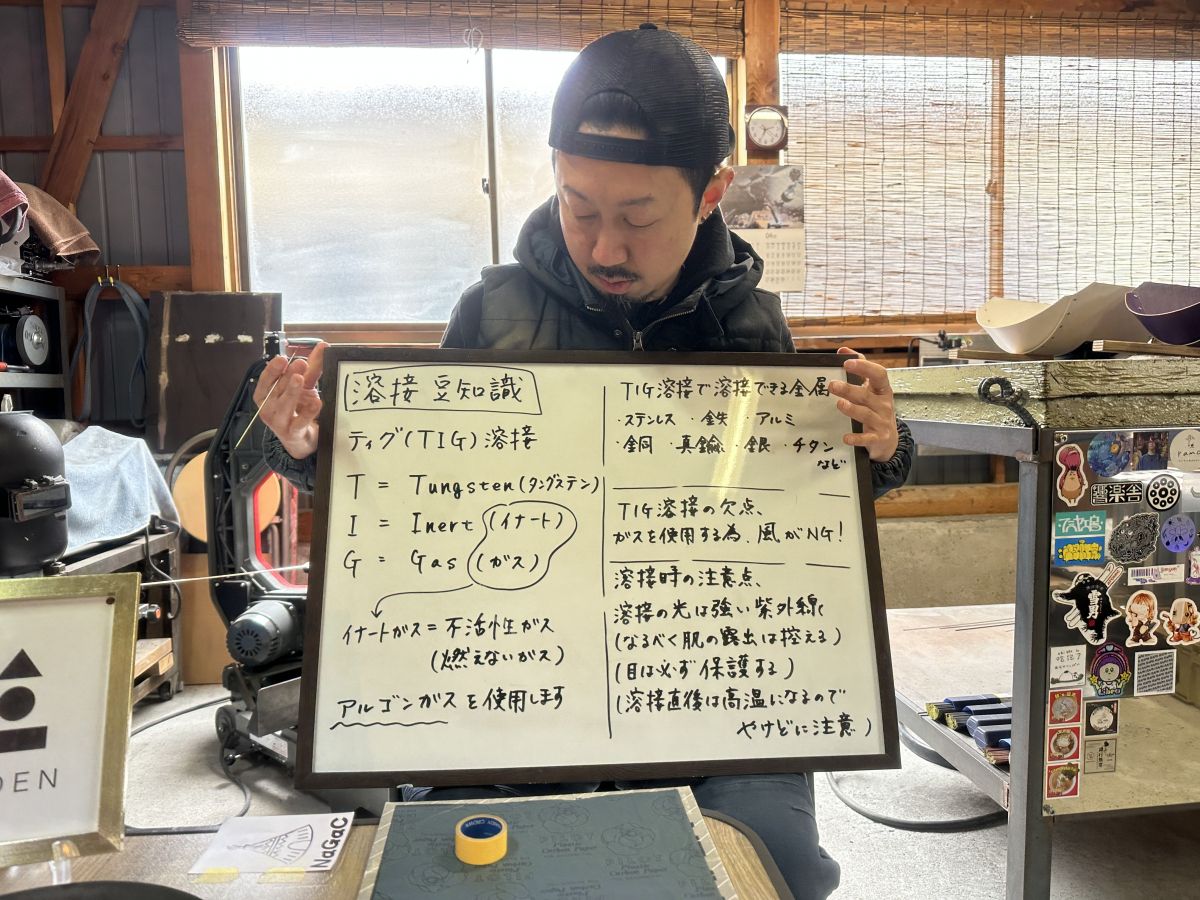 溶接豆知識
ティグ(TIG)溶接
T = Tungsten(タングステン)
I = Inert(イナート)
G = Gas(ガス)
イナートガス=不活性ガス
(燃えないガス)
アルゴンガスを使用します
TIG溶接で溶接できる金属
・ステンレス ・鉄 ・アルミ
・銅 ・真鍮 ・銀 ・チタン
など
TIG溶接の欠点、
ガスを使用する為、風がNG!
溶接時の注意点、
溶接の光は強い紫外線
(なるべく肌の露出は控える)
(目は必ず保護する)
(溶接直後は高温になるので
やけどに注意)
DEN
NaGaC
雪男